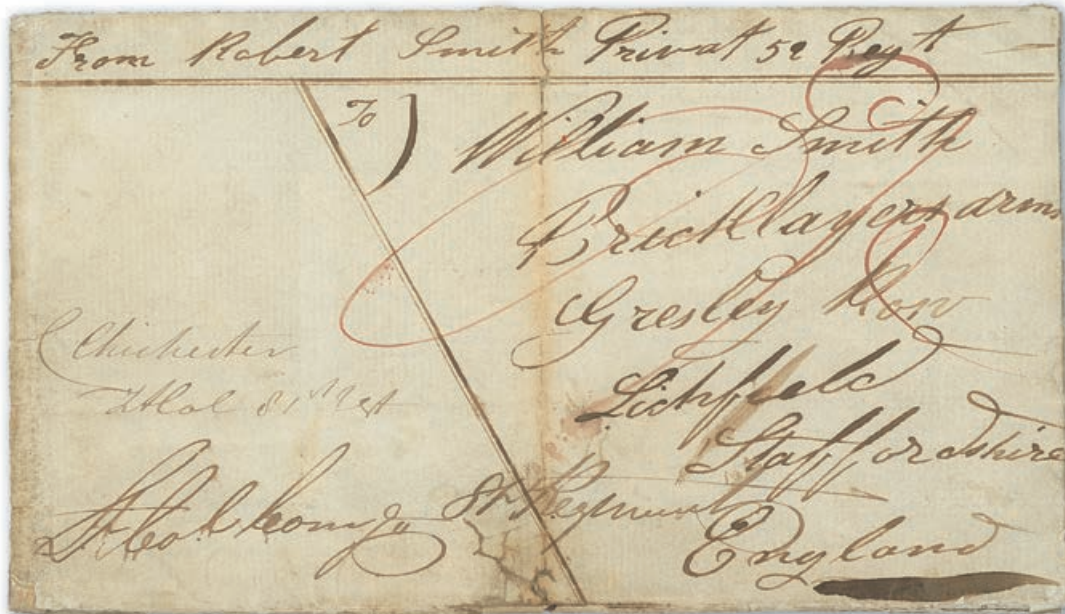 From Robert Smith Privat 52 Regt
To) William Smith
Bricklayers arms
Gresley Row
Lichfield
Staffordshire
England
Chichester
Lt Col 81st Regt
Lt Col Comg 81 Regiment